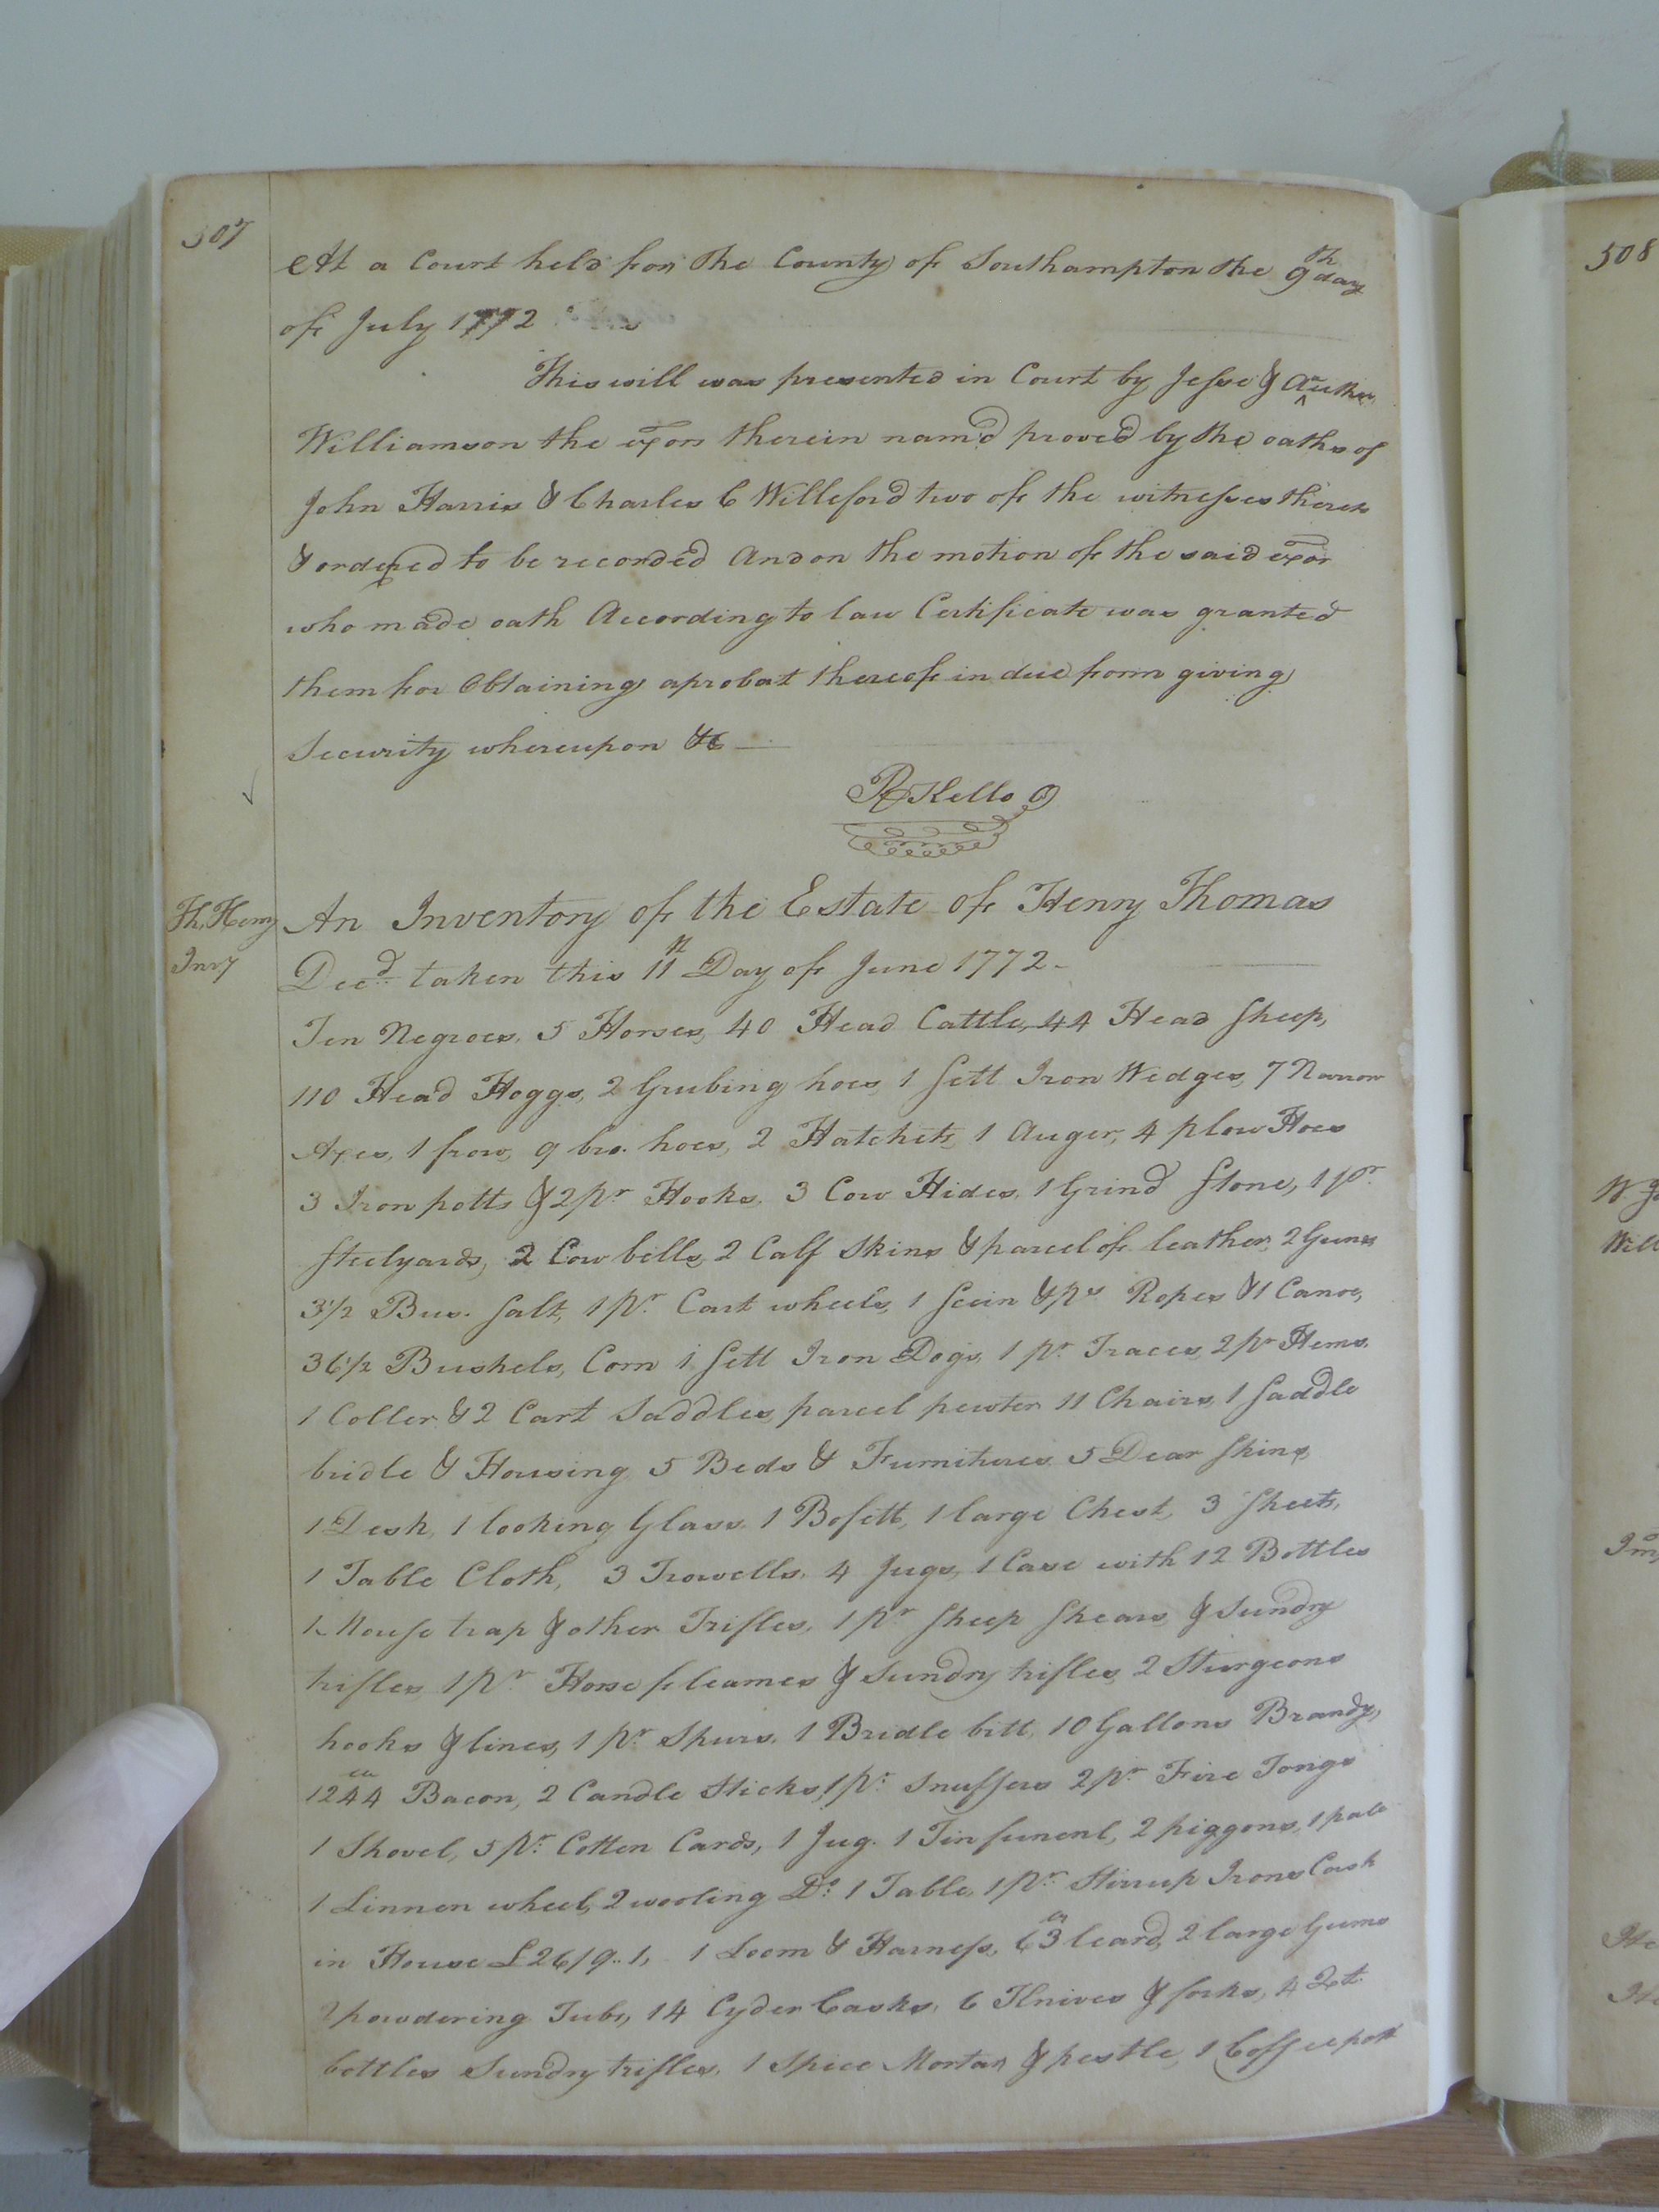 507
At a Court held for the County of Southampton the 9th day
of July 1772
This will was presented in Court by Jesse & Arthur
Williamson the exors therein nam'd proved by the oaths of
John Harris & Charles C Willeford two of the witnesses thereto
& ordered to be recorded And on the motion of the said exors
who made oath According to law Certificate was granted
them for Obtaining a probat thereof in due form giving
Security whereupon &c
R Kello
Th, Henry
Invy
An Inventory of the Estate of Henry Thomas
Decd. taken this 11th Day of June 1772
Ten Negroes, 5 Horses, 40 Head Cattle, 44 Head Sheep,
110 Head Hoggs, 2 Grubing hoes, 1 Sett Iron Wedges, 7 Narrow
Axes, 1 frow, 9 bro. hoes, 2 Hatchets, 1 Auger, 4 plow Hoes
3 Iron potts & 2 pr Hooks, 3 Cow Hides, 1 Grind Stone, 1 pr.
Steelyards, 2 Cow bells, 2 Calf Skins & parcel of leather, 2 Guns
3 1/2 Bus. Salt, 1 pr. Cart wheels, 1 Sein & ps Ropes & 1 Canoe,
36 1/2 Bushels, Corn 1 Sett Iron Dogs, 1 pr. Traces, 2 pr Hems.
1 Coller & 2 Cart Saddles, parcel pewter 11 Chairs, 1 Saddle
bridle & Housing, 5 Beds & Furnitures 5 Dear Skins,
1 Desk, 1 looking Glass, 1 Bofett, 1 large Chest, 3 Sheets,
1 Table Cloth, 3 Trowells, 4 Jugs, 1 Case with 12 Bottles
1 Mouse trap & other Trifles, 1 pr Sheep Shears & Sundry
trifles 1 pr. Horse fleames & Sundry trifles, 2 Sturgeons
hooks & lines, 1 pr. Spurs, 1 Bridle bitt, 10 Gallons Brandy,
1244 Bacon, 2 Candle Sticks, 1 pr. Snuffers 2 pr. Fire Tongs
1 Shovel, 5 pr. Cotten Cards, 1 Jug. 1 Tin funenl, 2 piggons, 1 pale
1 Linnen wheel, 2 wooling Do. 1 Table, 1 pr. Stirrup Irons Cash
in House £26/9..1, 1 Loom & Harness, 63 leard, 2 large Gums
2 powdering Tubs, 14 Cyder Casks, 6 Knives & forks, 4 Qt.
bottles Sundry trifles, 1 Spice Mortar & pestle, 1 Coffeepott
508
Will